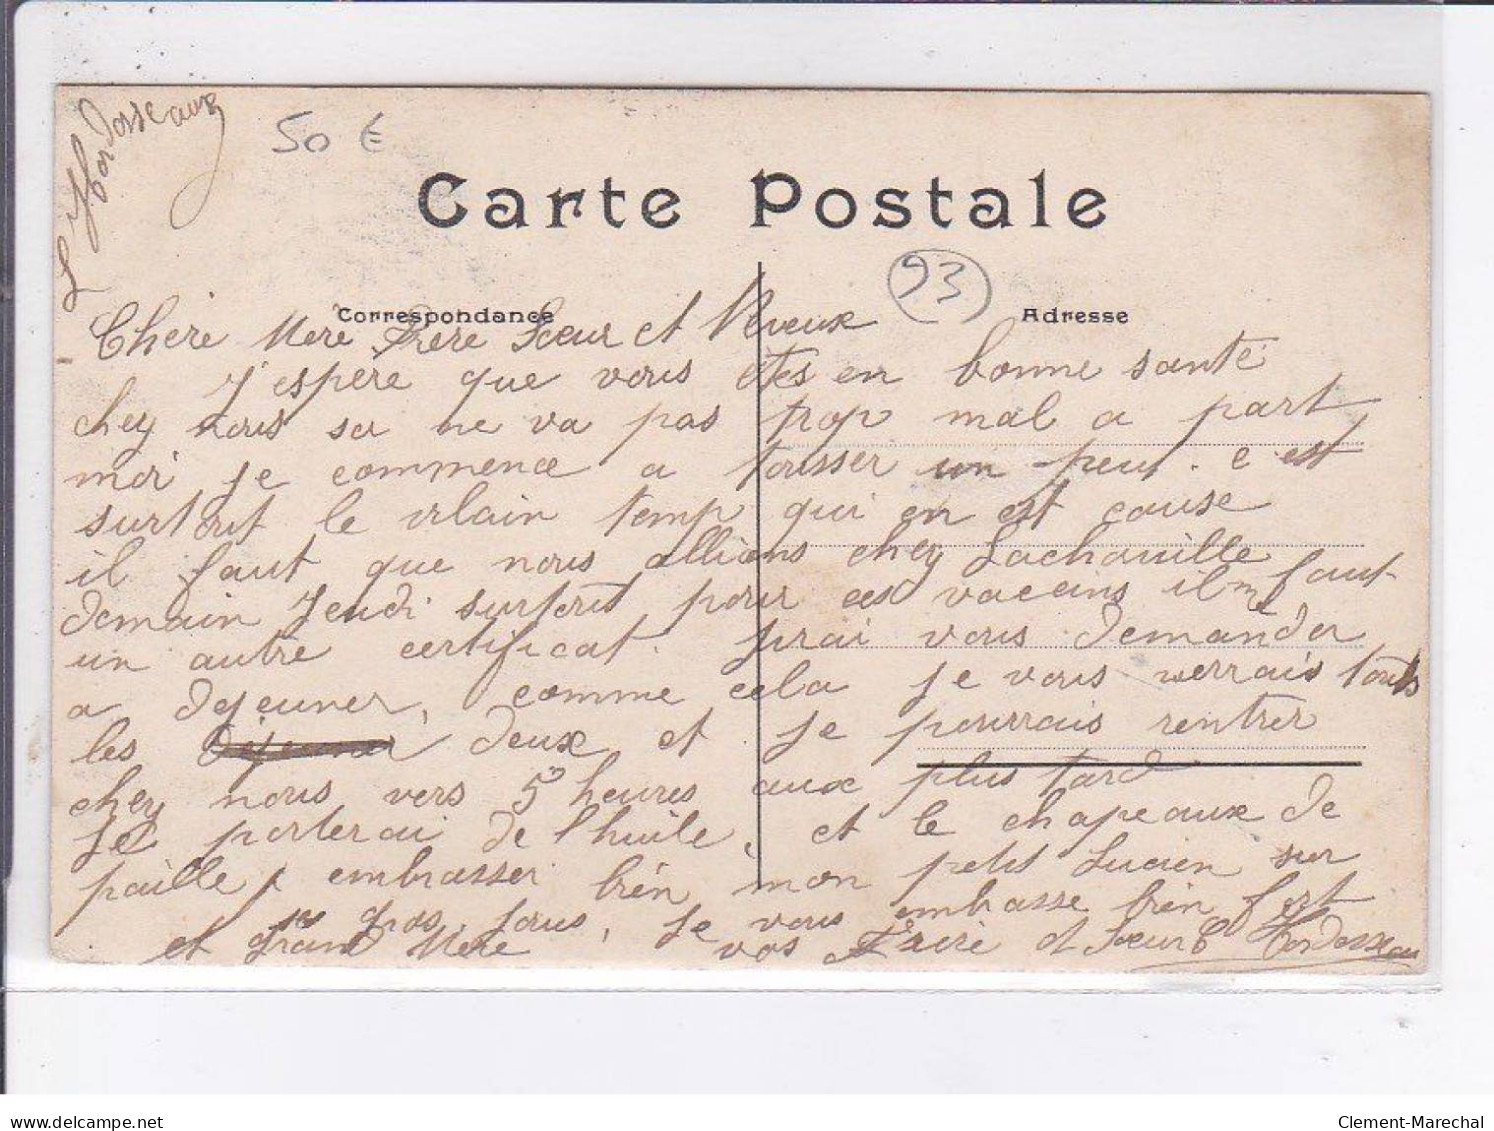 L Hordosseaux
50 €
Carte Postale
93
Correspondance
Adresse
Chere Mere Frere Sœur et Neveux
J'espere que vous etes en bonne santé
chez nous sa ne va pas trop mal a part
moi je commence a tousser un peu. c'est
surtout le vilain temp qui en est cause
il faut que nous allions chez Lachauille
demain Jeudi surtout pour ces vaccins il m faut
un autre certificat. jirai vous demander
a dejeuner, comme cela je vous verrais touts
les dejeuner deux et je pourrais rentrer
chez nous vers 5 heures aux plus tard
je porterai de l'huile, et le chapeaux de
paille, embrasser bien mon petit Lucien sur
gros jous, je vous embrasse bien fort
et Grand Mere vos Frere et Sœur Hordosseau
delcampe.net
Clement-Marechal